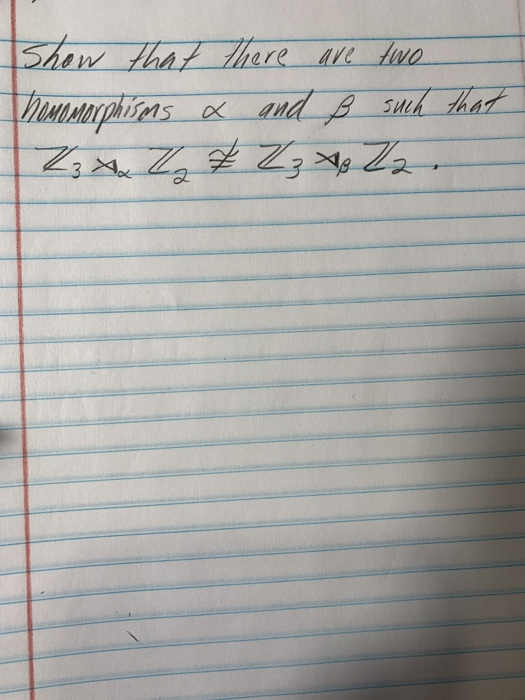 Show that there are two
homomorphisms α and β such that
ℤ₃ ⋊α ℤ₂ ≇ ℤ₃ ⋊β ℤ₂ .